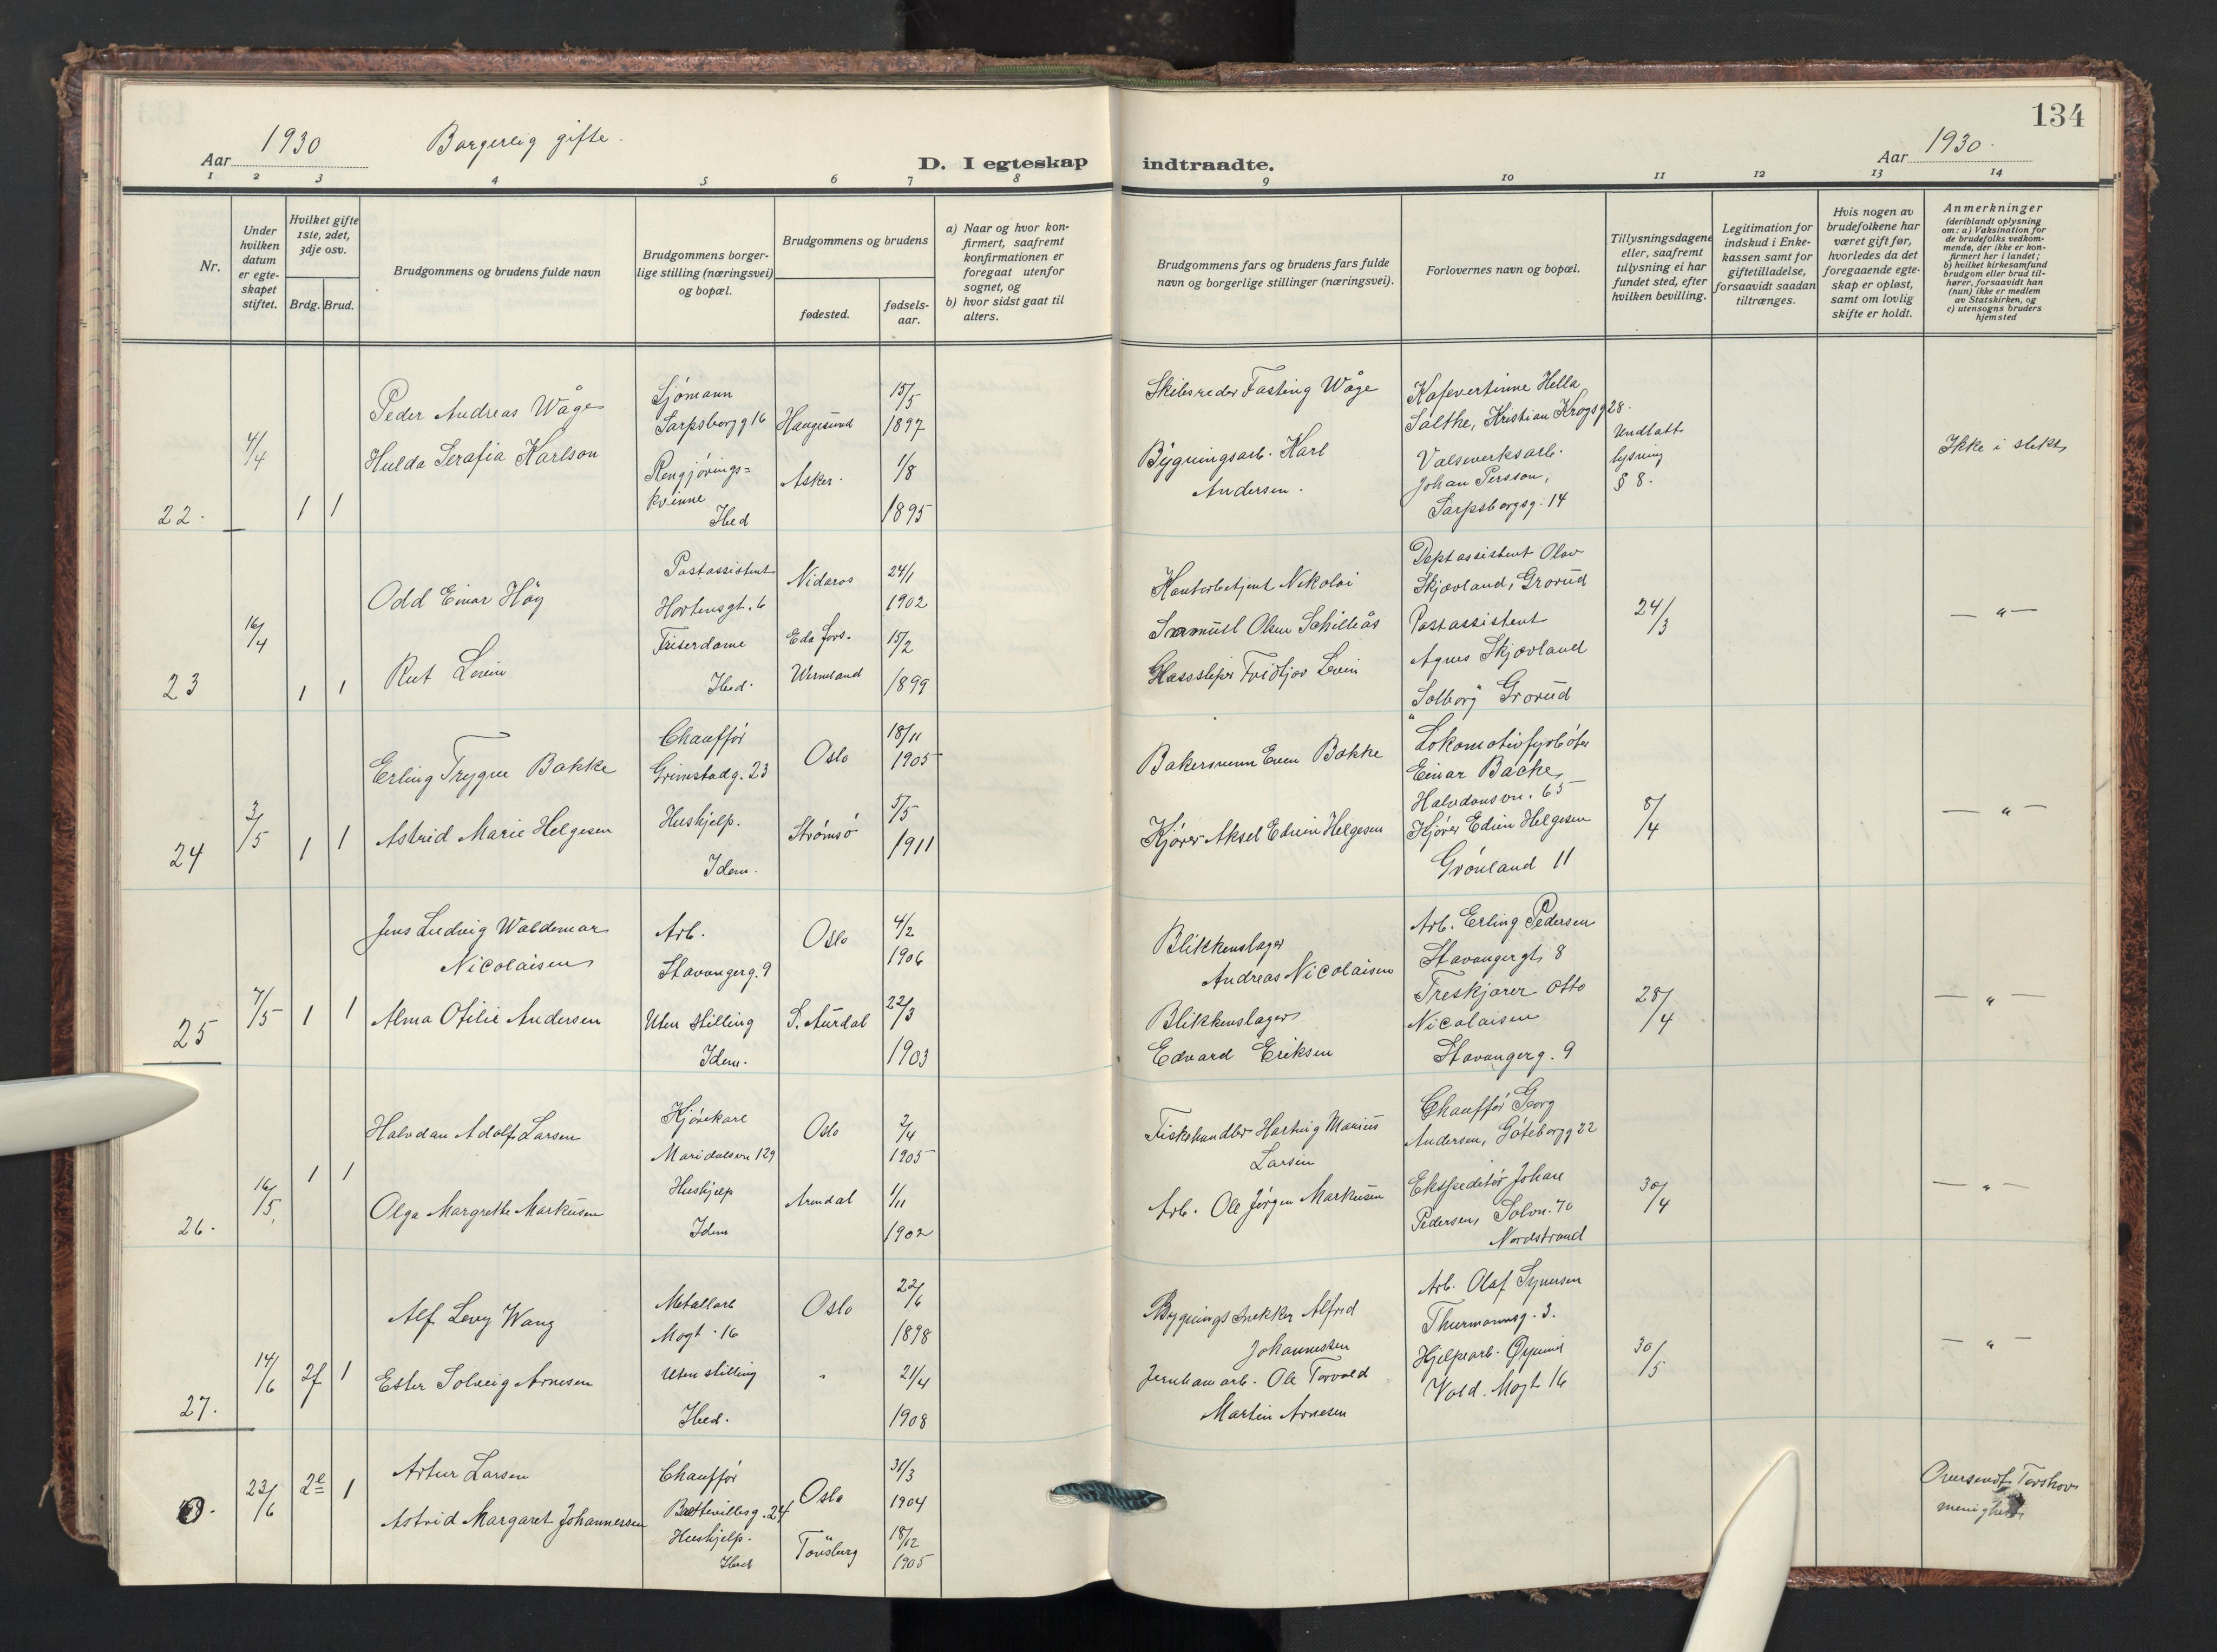 134
Aar 1930 Borgerlig gifte.
D. I egteskap indtraadte.
Aar 1930.
1 2 3 4 5 6 7 8 9 10 11 12 13 14
Nr.
Under hvilken datum er egte-skapet stiftet.
Hvilket gifte 1ste, 2det, 3dje osv.
Brdg. Brud.
Brudgommens og brudens fulde navn
Brudgommens borger-lige stilling (næringsvei) og bopæl.
Brudgommens og brudens
fødested.
fødsels-aar.
a) Naar og hvor kon-firmert, saafremt konfirmationen er foregaat utenfor sognet, og
b) hvor sidst gaat til alters.
Brudgommens fars og brudens fars fulde navn og borgerlige stillinger (næringsvei).
Forlovernes navn og bopæl.
Tillysningsdagene eller, saafremt tillysning ei har fundet sted, efter hvilken bevilling.
Legitimation for indskud i Enke-kassen samt for giftetilladelse, forsaavidt saadan tiltrænges.
Hvis nogen av brudefolkene har været gift før, hvorledes da det foregaaende egte-skap er opløst, samt om lovlig skifte er holdt.
Anmerkninger
(deriblandt oplysning om: a) Vaksination for de brudefolks vedkom-mende, der ikke er kon-firmert her i landet;
b) hvilket kirkesamfund brudgom eller brud til-hører, forsaavidt han (hun) ikke er medlem av Statskirken, og
c) utensogns bruders hjemsted
22. 4/4 1 1
Peder Andreas Wåge
Sjømann
Sarpsborgg 16
Haugesund
15/5 1897
Skibsreder Fasting Wåge
Kafevertinne Hella
Salthe, Kristian Krogsg 28.
Hulda Serafia Karlson
Rengjørings=
kvinne
Ibed
Asker.
1/8 1895
Bygningsarb. Karl
Andersen.
Valseverksarb.
Johan Persson,
Sarpsborgsg. 14
Undlatt
lysning
§ 8.
Ikke i slekt
23 16/4 1 1
Odd Einar Høy
Postassistent
Hortensgt. 6
Nidaros
24/1 1902
Nikolai
Samuel Olsen Schilleås
Deptassistent Olav
Skjøvland, Grorud
Rut Levin
Friserdame
Ibed.
Eda fors.
Wermland
15/2 1899
Glassliper Fridtjov Levin
Postassistent
Agnes Skjøvland
"Solborg" Grorud
24/3
— " —
24 3/5 1 1
Erling Trygve Bakke
Chauffør
Grimstadg. 23
Oslo
18/11 1905
Bakersvenn Even Bakke
Lokomotivfyrbøter
Einar Bache
Halvdansvn. 65
Astrid Marie Helgesen
Hushjelp.
Idem.
Strømsø
5/5 1911
Kjører Aksel Edvin Helgesen
Kjører Edvin Helgesen
Grønland 11
8/4
— " —
25 7/5 1 1
Jens Ludvig Waldemar
Nicolaisen
Arb.
Stavangerg. 9
Oslo
4/2 1906
Blikkenslager
Andreas Nicolaisen
Arb. Erling Pedersen
Stavangergt. 8
Alma Otilie Andersen
Uten stilling
Idem.
S. Aurdal
22/3 1903
Blikkenslager
Edvard Eriksen
Treskjærer Otto
Nicolaisen
Stavangerg. 9
28/4
— " —
26. 16/5 1 1
Halvdan Adolf Larsen
Kjørekarl
Maridalsvn 129
Oslo
2/4 1905
Fiskehandler Hartvig Marius
Larsen
Chauffør Georg
Andersen, Göteborgg 22
Olga Margrethe Markusen
Hushjelp
Idem
Arendal
1/11 1902
Arb. Ole Jörgen Markusen
Ekspeditør Johan
Pedersen, Solvn. 70
Nordstrand
30/4
— " —
27. 14/6 2f 1
Alf Levy Wang
Metallarb
Mogt. 16
Oslo
22/6 1898
Bygningssnekker Alfred
Johannessen
Arb. Olaf Syversen
Thurmannsg. 3.
Ester Solveig Arnesen
Uten stilling
Ibed.
"
21/4 1908
Jernbanarb. Ole Torvald
Martin Arnesen
Hjelpearb. Øyvind
Vold. Mogt 16
30/5
— " —
23/6 2e 1
Artur Larsen
Chauffør
24
Oslo
31/3 1904
Astrid Margaret Johannessen
Hushjelp.
Ibed
Tönsberg
18/12 1905
Oversendt Torshov
menighet